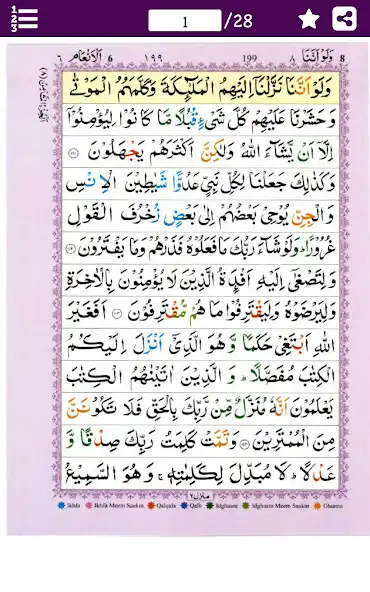 1 /28
٦ الانعام 6 ١٩٩ 199 ولواننا ٨ 8
وَلَوْ اَنَّنَا نَزَّلْنَاۤ اِلَيْهِمُ الْمَلٰٓئِكَةَ وَكَلَّمَهُمُ الْمَوْتٰى
وَحَشَرْنَا عَلَيْهِمْ كُلَّ شَىْءٍ قُبُلًا مَّا كَانُوْا لِيُؤْمِنُوْۤا
اِلَّاۤ اَنْ يَّشَآءَ اللّٰهُ وَلٰكِنَّ اَكْثَرَهُمْ يَجْهَلُوْنَ ﴿١١١﴾
وَكَذٰلِكَ جَعَلْنَا لِكُلِّ نَبِىٍّ عَدُوًّا شَيٰطِيْنَ الْاِنْسِ
وَالْجِنِّ يُوْحِىْ بَعْضُهُمْ اِلٰى بَعْضٍ زُخْرُفَ الْقَوْلِ
غُرُوْرًا ؕ وَلَوْ شَآءَ رَبُّكَ مَا فَعَلُوْهُ فَذَرْهُمْ وَمَا يَفْتَرُوْنَ ﴿١١٢﴾
وَلِتَصْغٰۤى اِلَيْهِ اَفْـِٕدَةُ الَّذِيْنَ لَا يُؤْمِنُوْنَ بِالْاٰخِرَةِ
وَلِيَرْضَوْهُ وَلِيَقْتَرِفُوْا مَا هُمْ مُّقْتَرِفُوْنَ ﴿١١٣﴾ اَفَغَيْرَ
اللّٰهِ اَبْتَغِىْ حَكَمًا وَّهُوَ الَّذِىْۤ اَنْزَلَ اِلَيْكُمُ
الْكِتٰبَ مُفَصَّلًا ؕ وَالَّذِيْنَ اٰتَيْنٰهُمُ الْكِتٰبَ
يَعْلَمُوْنَ اَنَّهٗ مُنَزَّلٌ مِّنْ رَّبِّكَ بِالْحَقِّ فَلَا تَكُوْنَنَّ
مِنَ الْمُمْتَرِيْنَ ﴿١١٤﴾ وَتَمَّتْ كَلِمَتُ رَبِّكَ صِدْقًا وَّ
عَدْلًا ؕ لَا مُبَدِّلَ لِكَلِمٰتِهٖ ۚ وَهُوَ السَّمِيْعُ
منزل ٢
Ikhfa Ikhfa Meem Saakin Qalqala Qalb Idghaam Idghaam Meem Saakin Ghunna